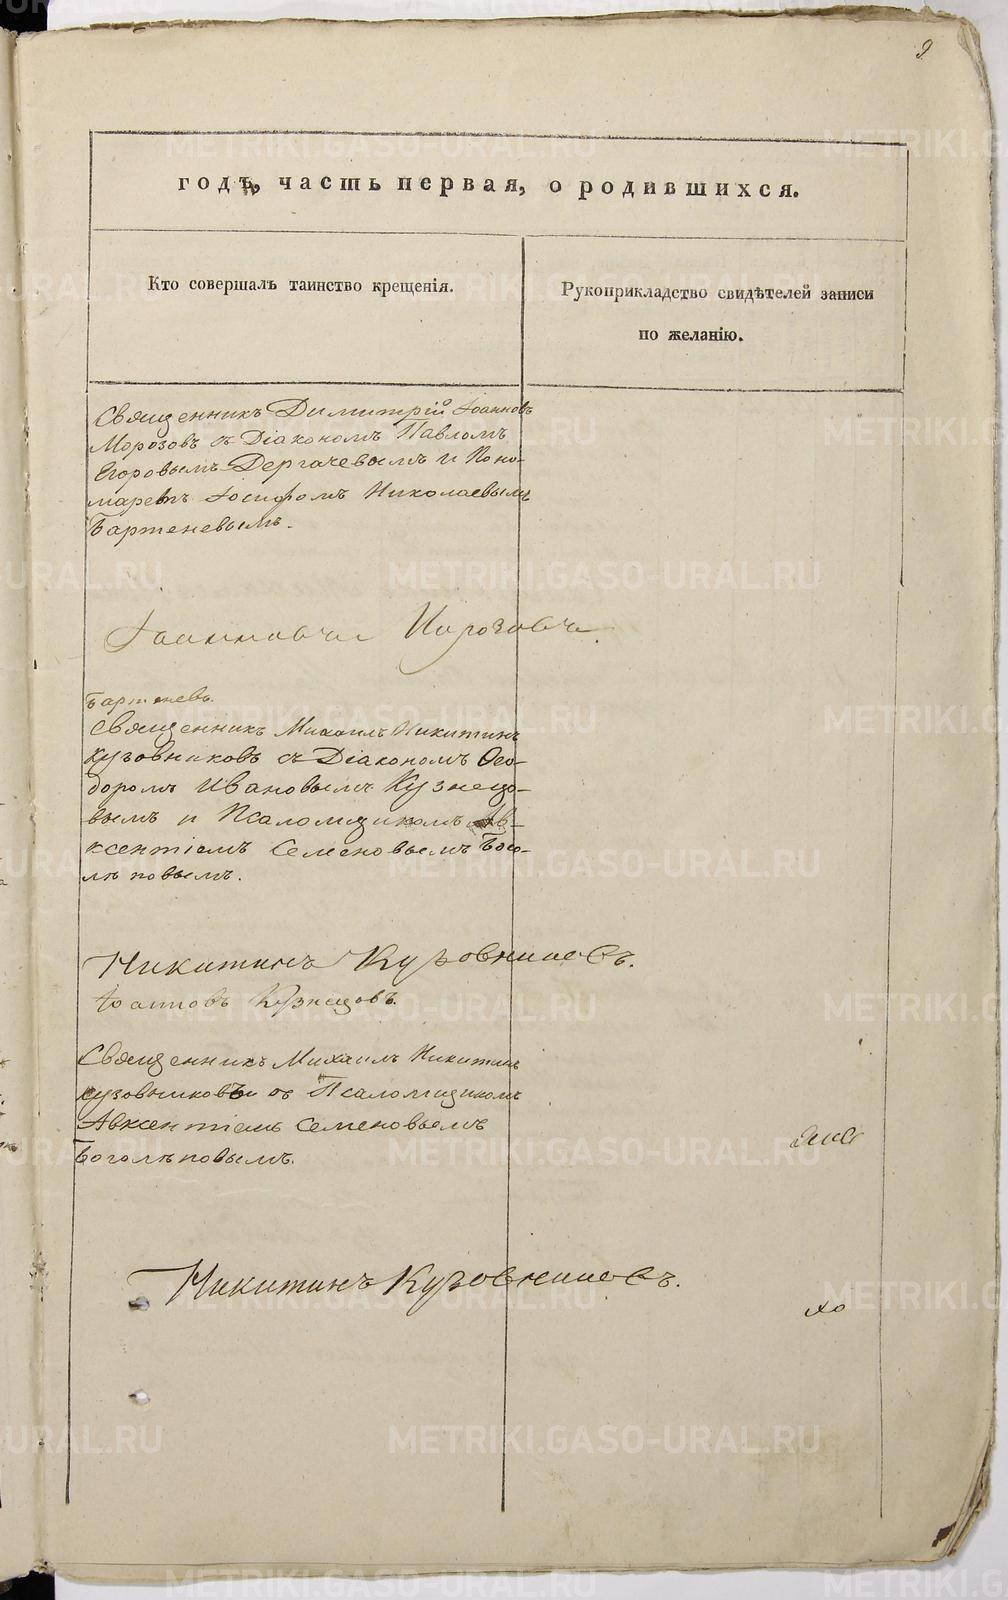 9
годъ, часть первая, о родившихся.
Кто совершалъ таинство крещенія.
Рукоприкладство свидѣтелей записи
по желанію.
Священникъ Димитрій Іоанновъ
Морозовъ съ Діакономъ Павломъ
Егоровымъ Дергачевымъ и Поно-
маремъ Іосифомъ Николаевымъ
Бартеневымъ.
Бартеневъ.
Священникъ Михаилъ Никитинъ
Кузовниковъ съ Діакономъ Ѳео-
доромъ Ивановымъ Кузнецо-
вымъ и Псаломщикомъ Ав-
ксентіемъ Семеновымъ Бого-
лѣповымъ.
Никитинъ Кузовниковъ.
Іоанновъ Кузнецовъ.
Священникъ Михаилъ Никитинъ
Кузовниковъ съ Псаломщикомъ
Авксентіемъ Семеновымъ
Боголѣповымъ.
Никитинъ Кузовниковъ.
METRIKI.GASO-URAL.RU